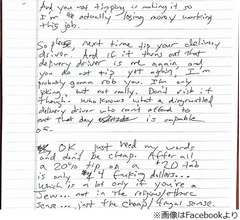 And you not tipping is making it so
I'm actually losing money working
this job.
So please, next time tip your delivery
driver. And if it turns out that
delivery driver is me again, and
you do not tip yet again, I'm
probably gonna rob you. I'm only
joking, but not really. Don't risk it
though. Who knows what a disgruntled
delivery driver who can't afford to
eat that day is capable
of.
OK, just heed my words
and don't be cheap. After all
a 20% tip on a $20 tab
is only $4 fucking dollars...
Which is a lot only if you're a
Jew... not in the religious/ethnic
sense... just the cheap/frugal sense.
※画像はFacebookより